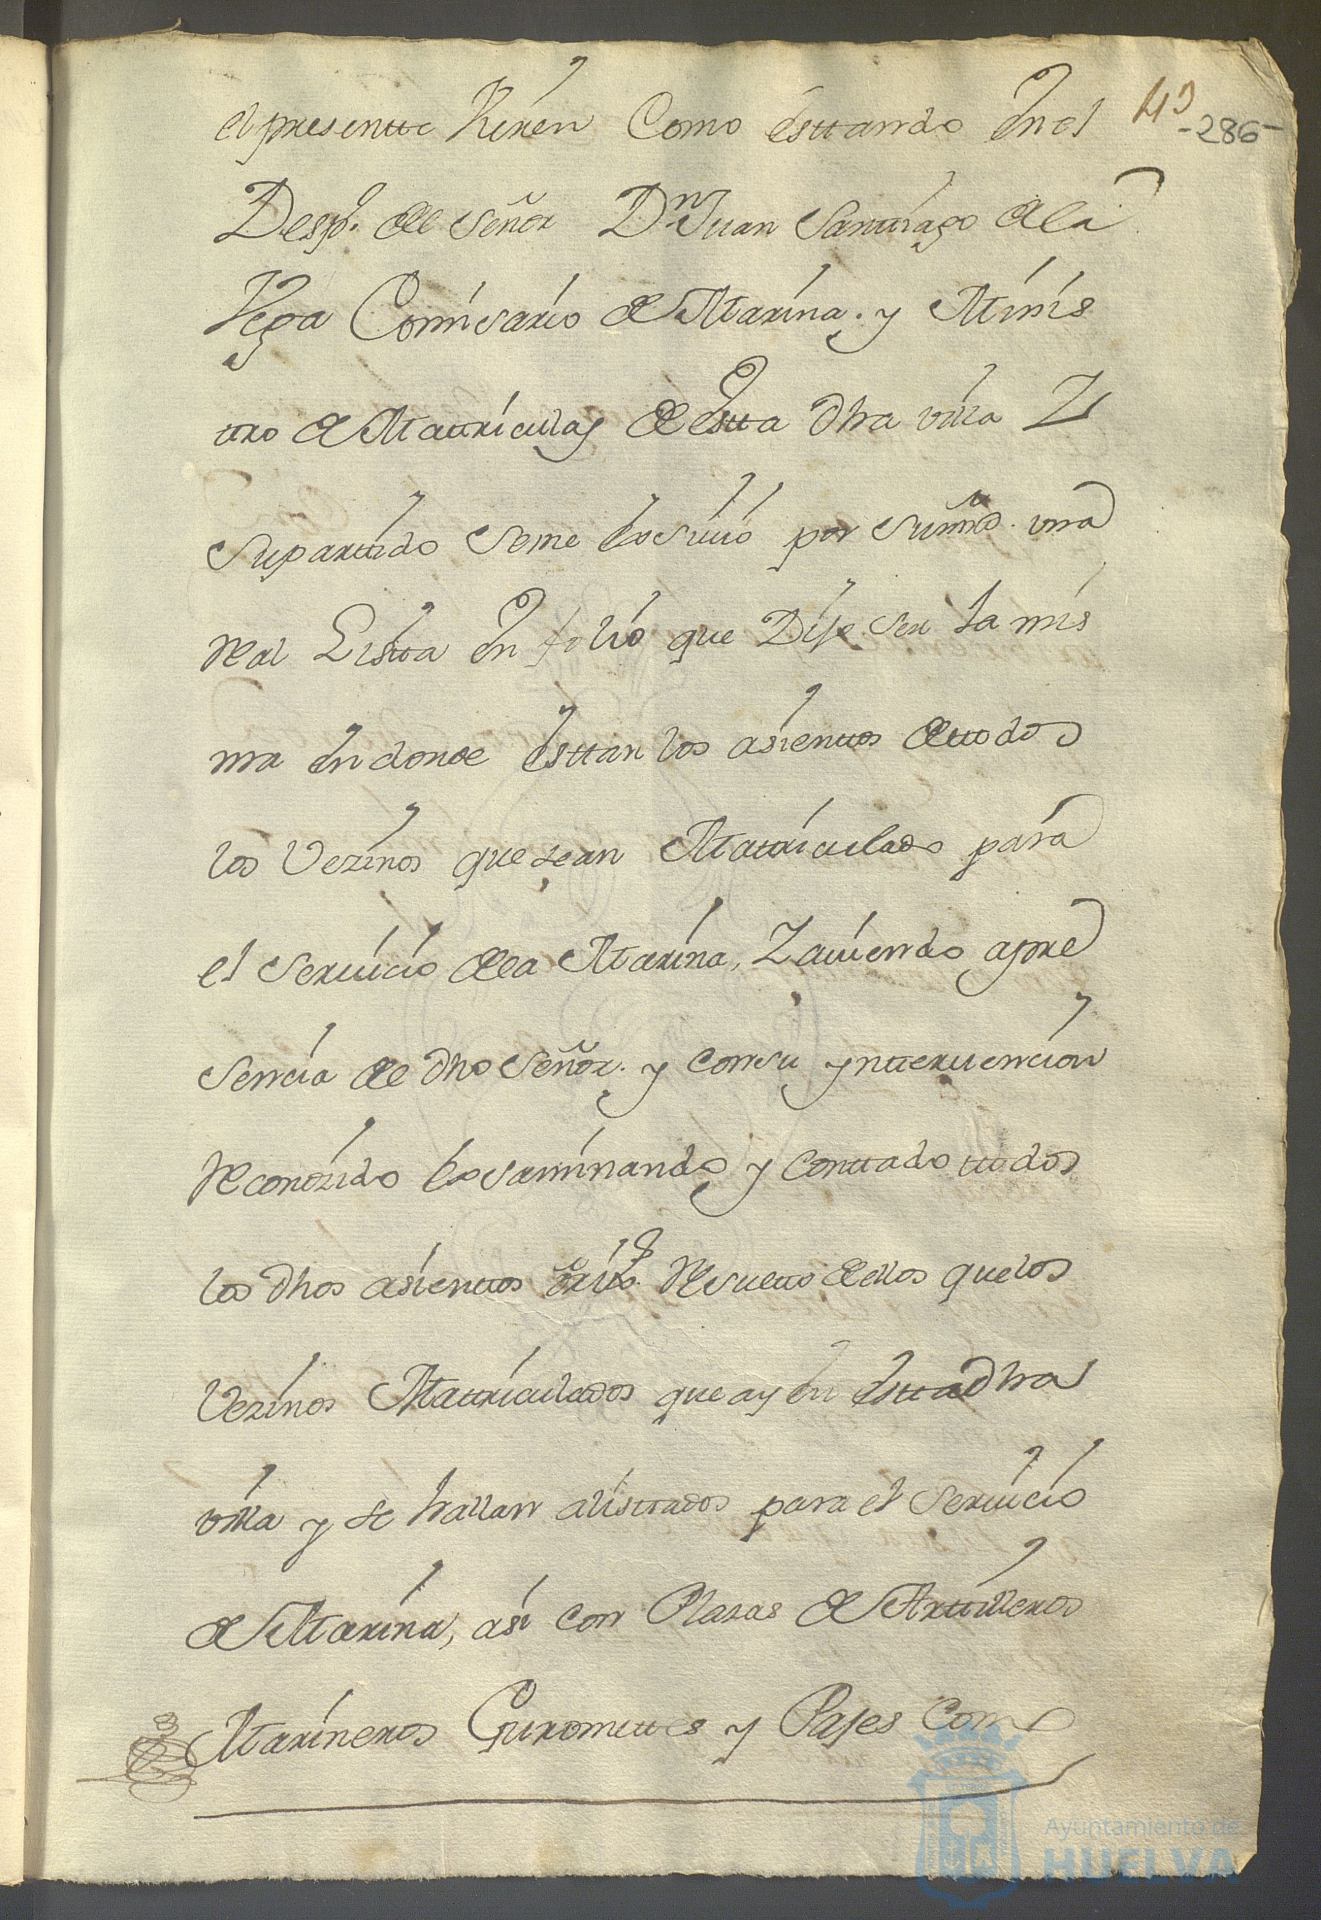 43
-286-
el presentte Vieren Como ésttando én el
Desp.º de el señor D.n Juan Santtiago de la
Vega Comisario de Marina. y Minis
ttro de Mattriculas de éstta dha villa Y
su parttido se me éxsiuió por su mrd. vna
Real Listta én folio que Dijo ser la mis
ma én donde ésttan los asienttos de ttodos
los Vezinos que se an Mattriculado para
el seruicio de la Marina, Y auiendo a pre
sencia de dho señor. y con su ynttervencion
Reconozido éxsaminando y conttado ttodos
los dhos asienttos Resuelto de ellos que los
Vezinos Mattriculados que ay én éstta dha
villa y se hallan alisttados para el seruicio
de Marina, así con Plazas de Arttilleros
Marineros Gurumettes y Pajes Com
Ayuntamiento de
HUELVA